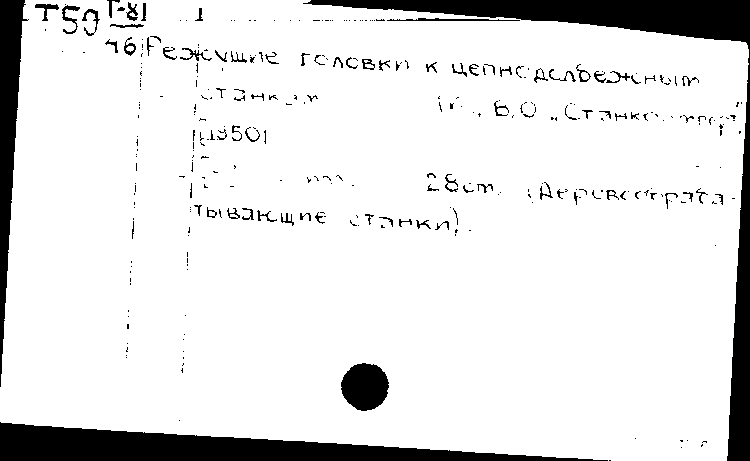 Т50 Т-81 1
46 Режущие головки к цепнодолбежным
станкам М., В,О „Станкоимпорт"
[1950]
28 cm. (Деревообраба-
тывающие станки).